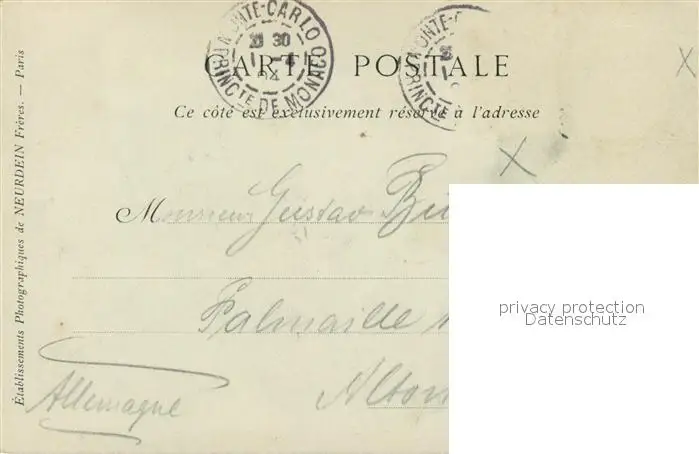 MONTE-CARLO
PRINCTÉ DE MONACO
30
04
MONTE-C
PRINCTÉ
CARTE POSTALE
Ce côté est exclusivement réservé à l'adresse
Établissements Photographiques de NEURDEIN Frères. — Paris
Monsieur Gustav
Palmaille
Alton
Allemagne
privacy protection
Datenschutz